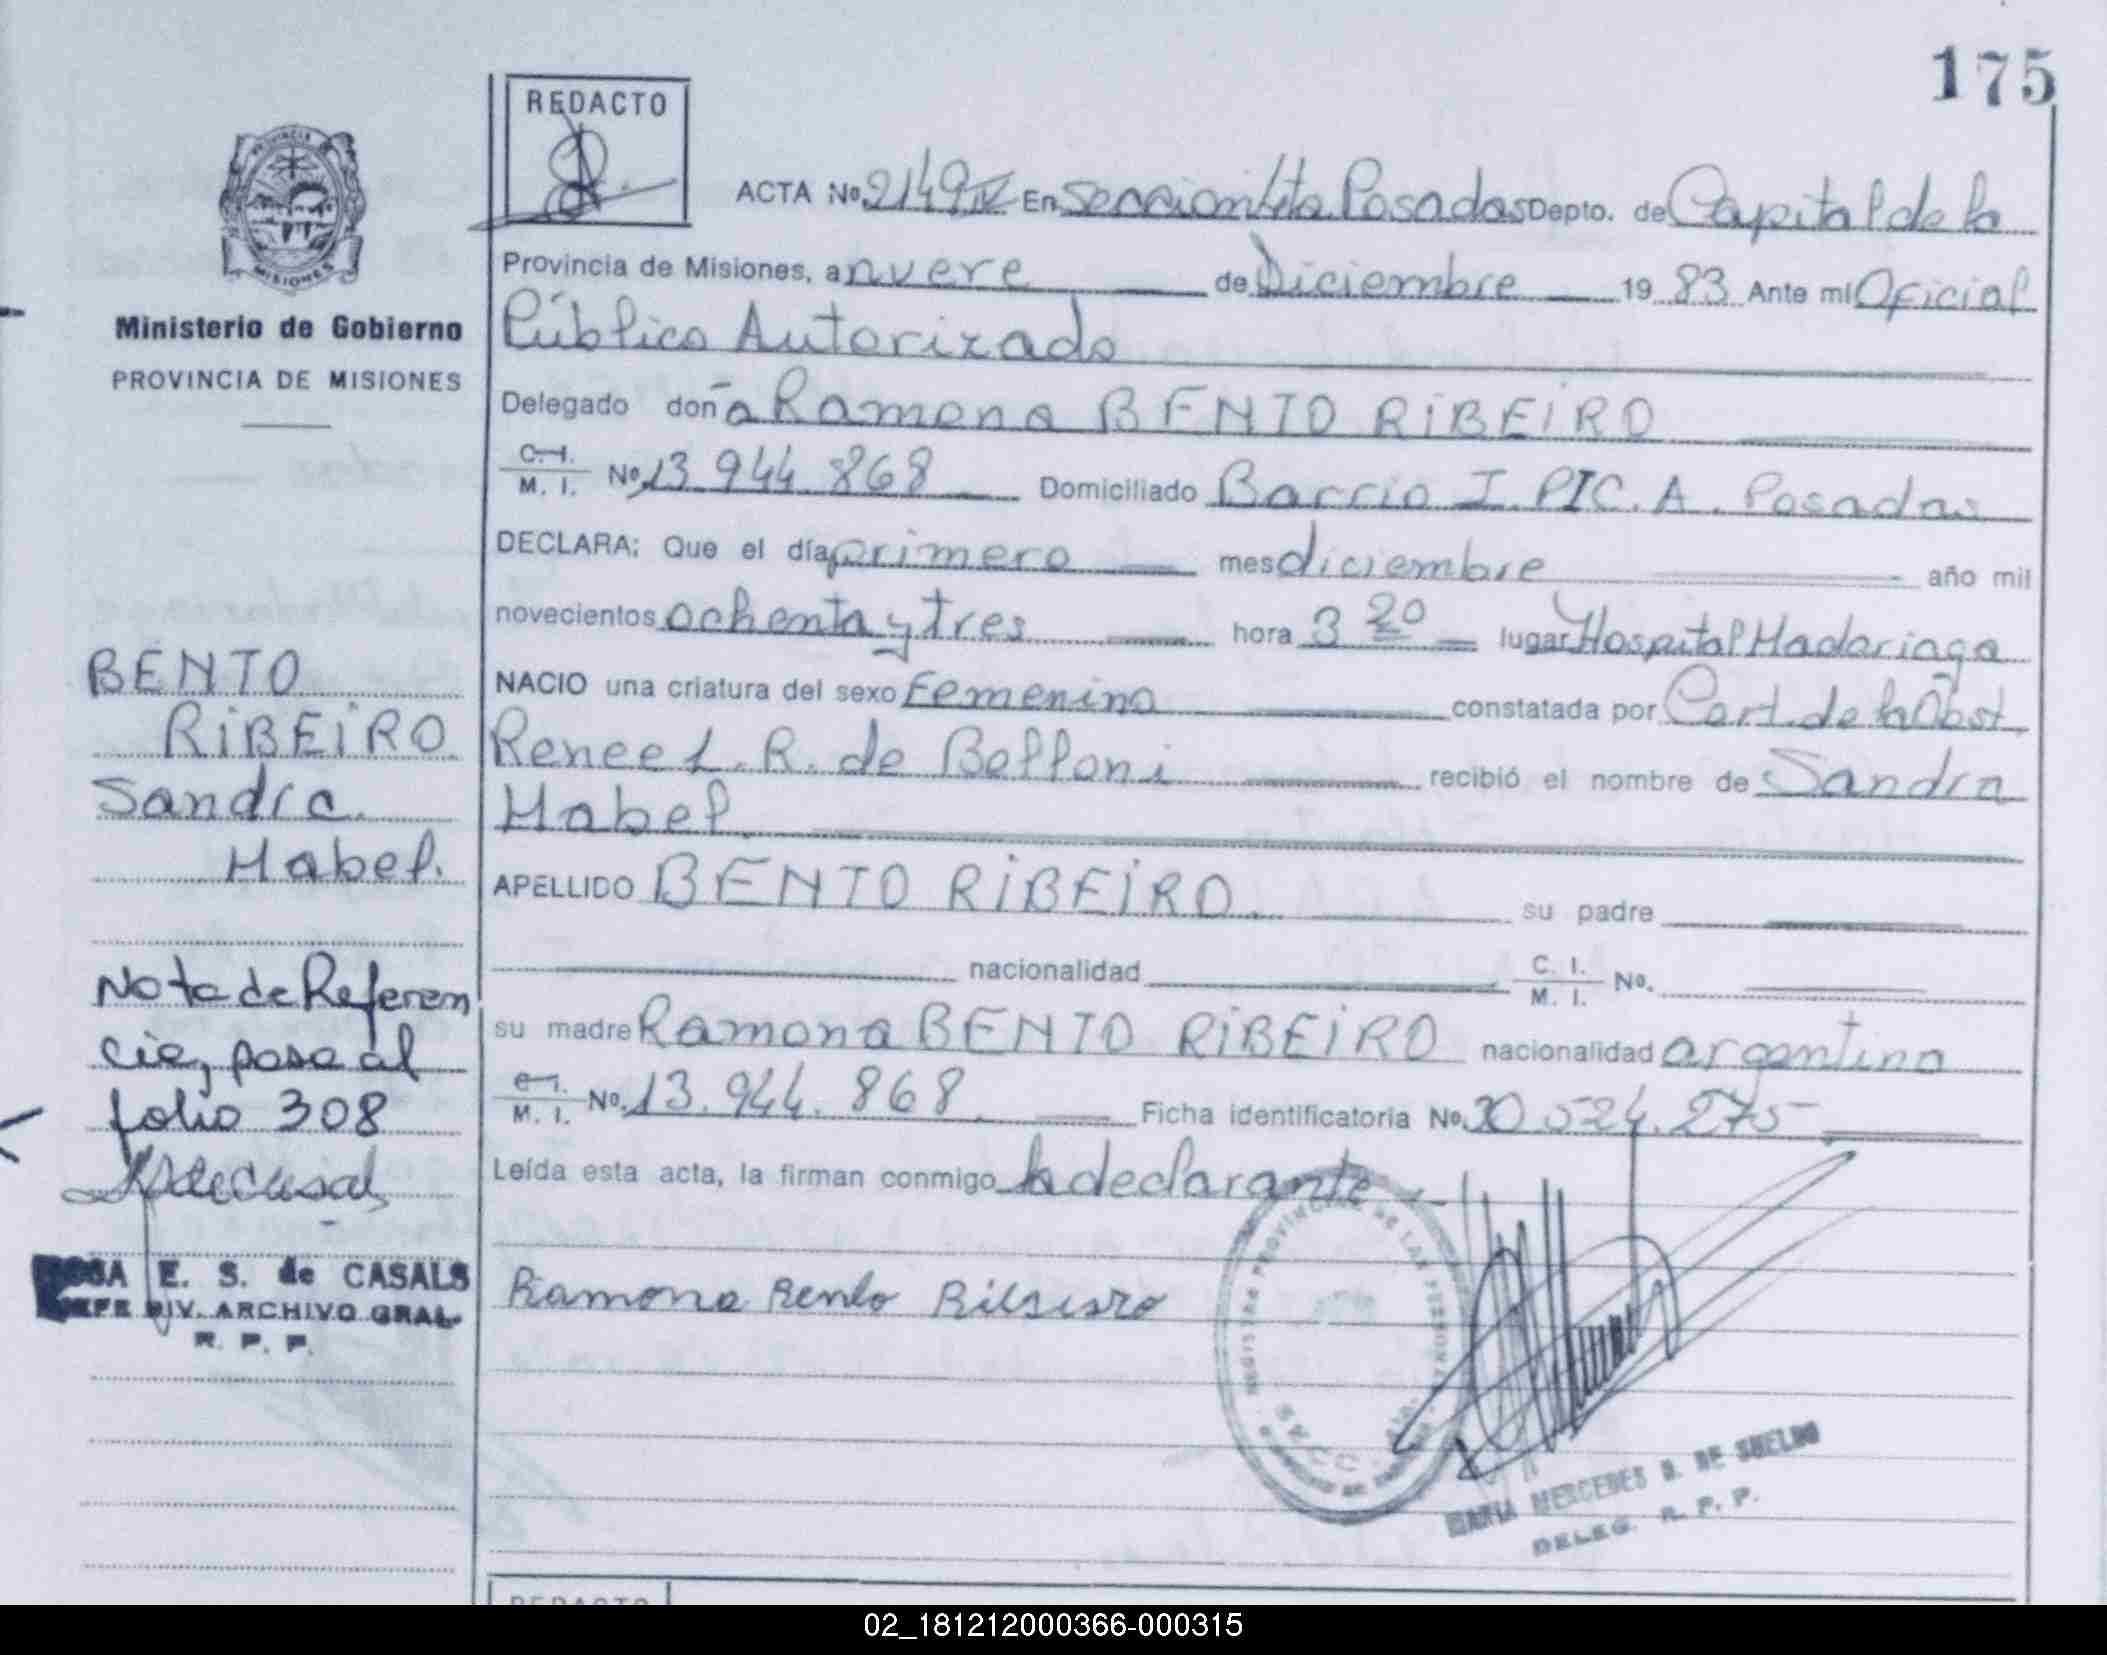 175
REDACTO
PROVINCIA DE
MISIONES
Ministerio de Gobierno
PROVINCIA DE MISIONES
ACTA Nº 2149 IV En Seccion 4ta Posadas Depto. de Capital de la
Provincia de Misiones, a nueve de Diciembre 19 83 Ante mi Oficial
Público Autorizado
Delegado doña Ramona BENTO RIBEIRO
C. I.
M. I. Nº 13.944.868 Domiciliado Barrio I.PIC.A. Posadas
DECLARA: Que el día primero mes diciembre año mil
novecientos ochenta y tres hora 3 20 lugar Hospital Madariaga
NACIO una criatura del sexo Femenino constatada por Cert. de la Obst.
Renee L. R. de Belloni recibió el nombre de Sandra
Mabel
APELLIDO BENTO RIBEIRO su padre
nacionalidad C. I.
M. I. Nº.
su madre Ramona BENTO RIBEIRO nacionalidad argentina
C. I.
M. I. Nº. 13.944.868 Ficha identificatoria Nº 30.524.275
Leída esta acta, la firman conmigo la declarante
Ramona Bento Ribeiro
BENTO
RIBEIRO
Sandra
Mabel.
Nota de Referen
cia, pasa al
folio 308
E. S. de CASALS
JEFE DIV. ARCHIVO GRAL.
R. P. P.
PROVINCIAL DE LAS PERSONAS
SECC.
MARIA MERCEDES B. DE SUELDO
DELEG. R. P. P.
REDACTO
02_181212000366-000315